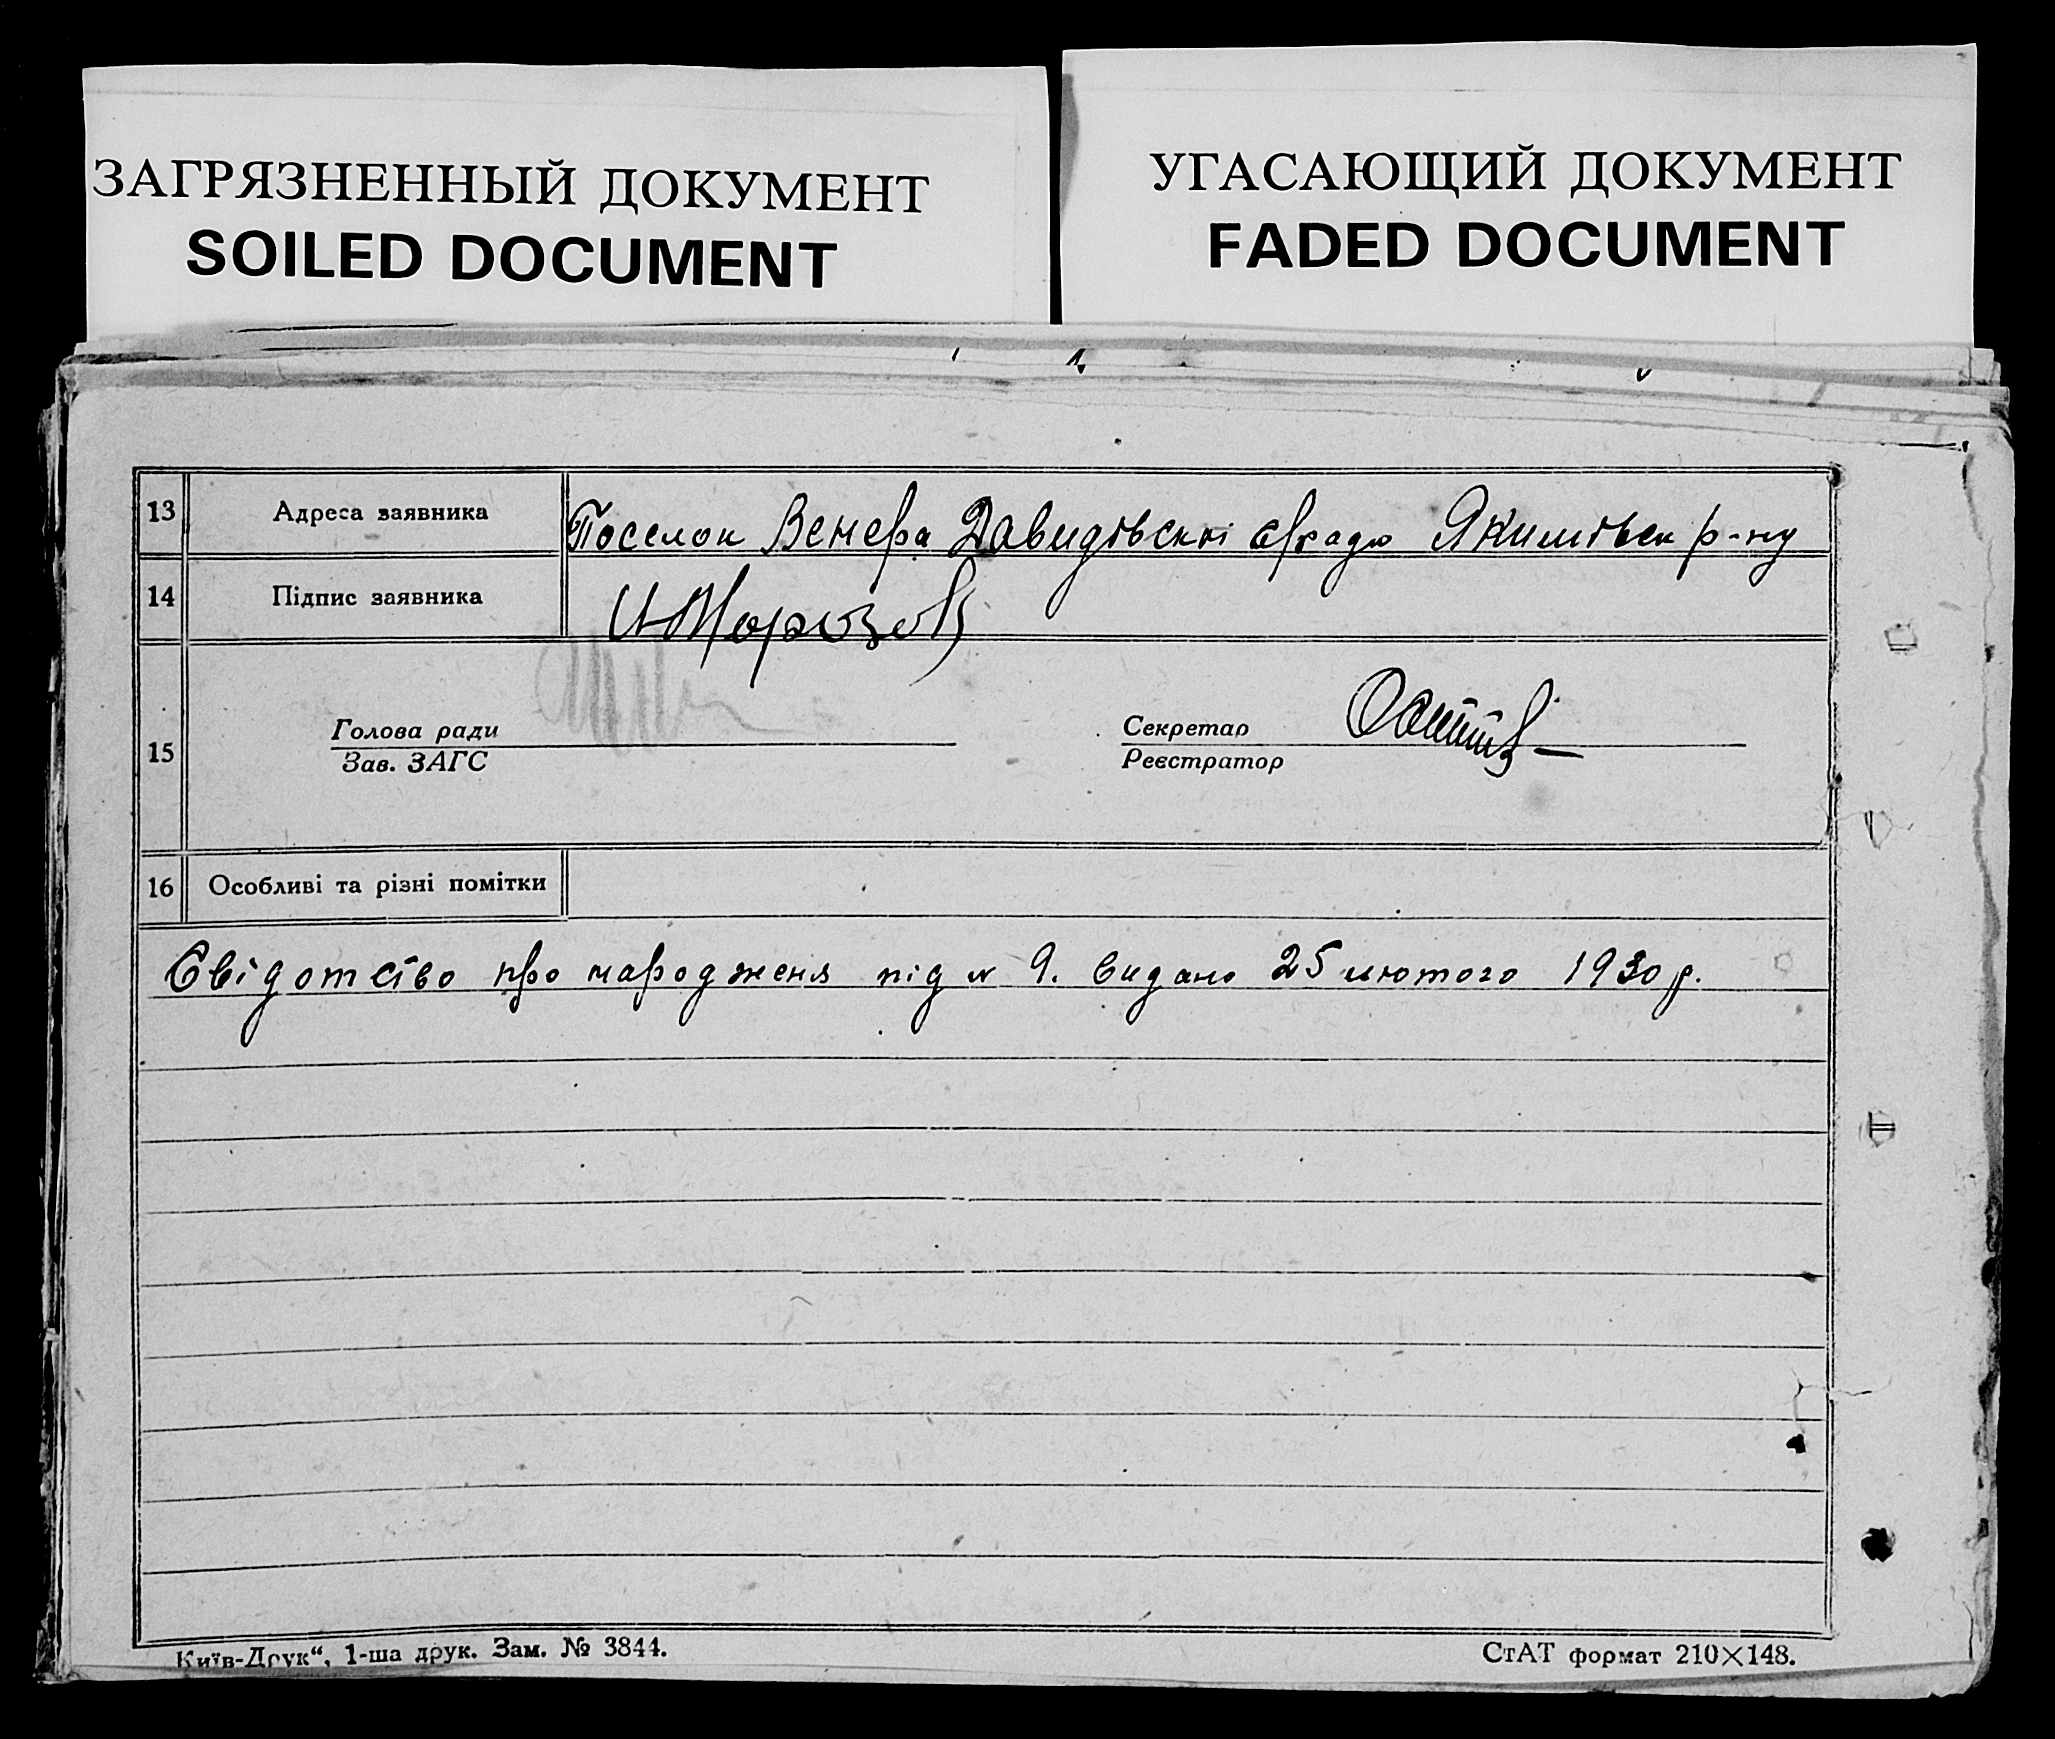 ЗАГРЯЗНЕННЫЙ ДОКУМЕНТ
SOILED DOCUMENT
УГАСАЮЩИЙ ДОКУМЕНТ
FADED DOCUMENT
13 Адреса заявника Поселок Венера Давидівскі с/ради Якимівск р-ну
14 Підпис заявника И Морозов
15 Голова ради Секретар
Зав. ЗАГС Реєстратор
16 Особливі та різні помітки
Свідотство про народженя під № 9. видано 25 лютого 1930 р.
Київ-Друк“, 1-ша друк. Зам. № 3844. СтАТ формат 210×148.